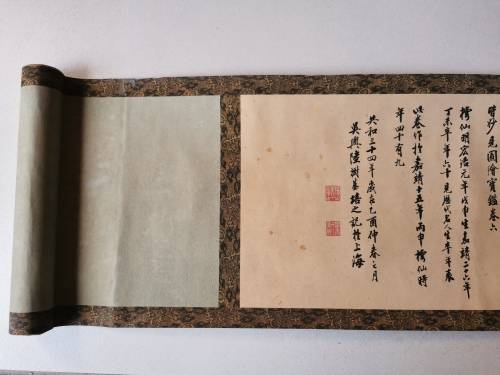 妙見圖繪寶鑑卷六
樗仙明宏治元年戊申生嘉靖二十六年
丁未卒年六十見歷代名人生卒年表
此卷作於嘉靖十五年丙申樗仙時
年四十有九
共和三十四年歲在乙酉仲春之月
吳興陸樹基培之記於上海